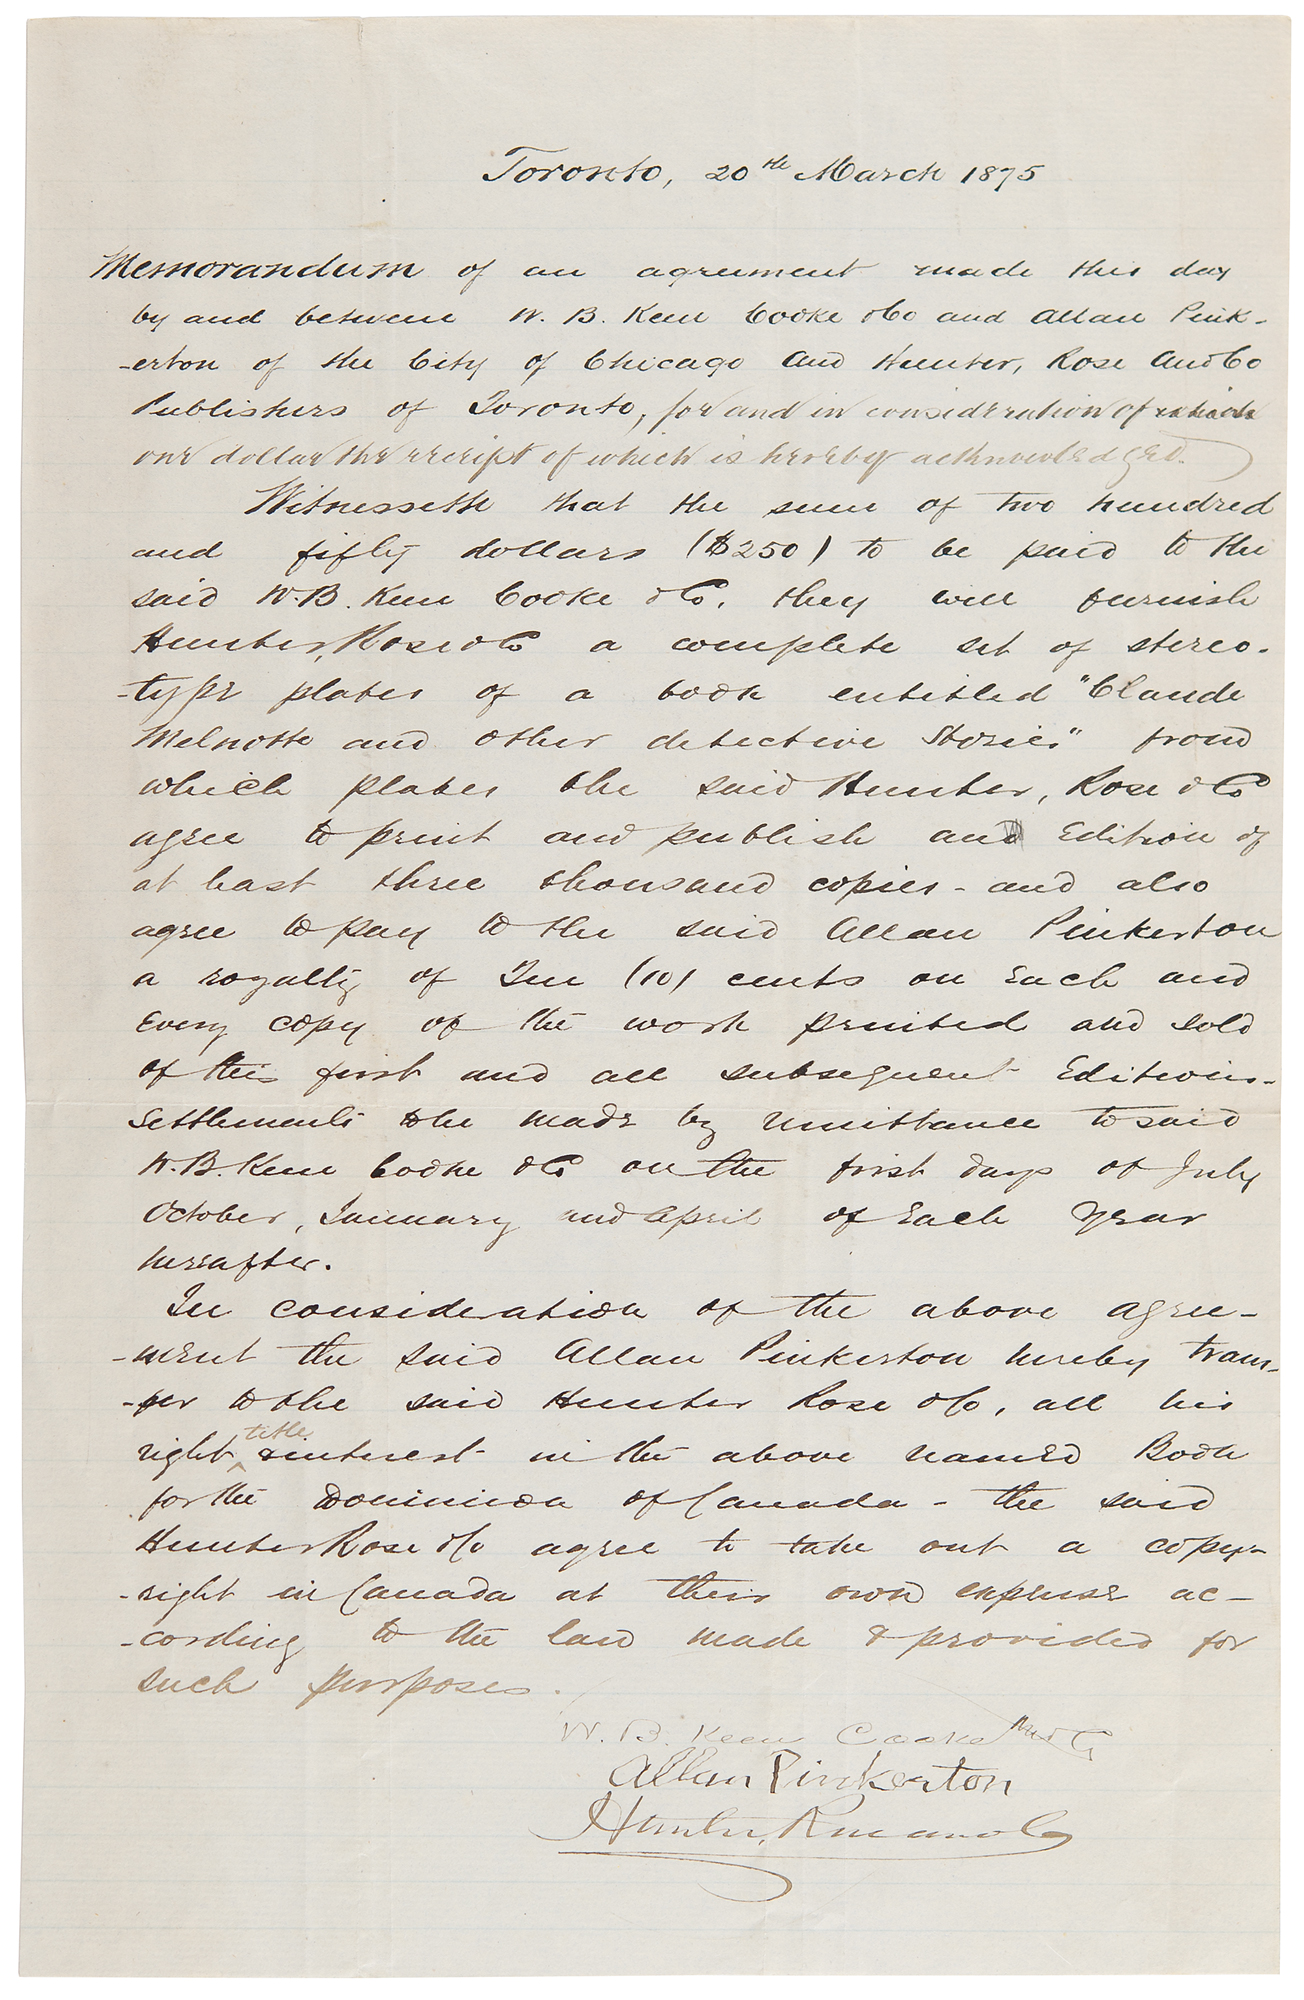 Toronto, 20th March 1875
Memorandum of an agreement made this day
by and between W. B. Keen Cooke & Co and Allan Pink-
-erton of the City of Chicago and Hunter, Rose and Co
Publishers of Toronto, for and in consideration of
one dollar the receipt of which is hereby acknowledged.
Witnesseth that the sum of two hundred
and fifty dollars ($250) to be paid to the
said W. B. Keen Cooke & Co, they will furnish
Hunter, Rose & Co a complete set of stereo-
-type plates of a book entitled "Claude
Melnotte and other detective Stories" from
which plates the said Hunter, Rose & Co
agree to print and publish an Edition of
at least three thousand copies - and also
agree to pay to the said Allan Pinkerton
a royalty of Ten (10) cents on Each and
Every copy of the work printed and sold
of this first and all subsequent Editions-
Settlements to be made by remittance to said
W. B. Keen Cooke & Co on the first days of July
October, January and April of Each Year
hereafter.
In consideration of the above agree-
-ment the said Allan Pinkerton hereby trans-
-fer to the said Hunter Rose & Co, all his
right title & interest in the above named Book
for the Dominion of Canada - the said
Hunter Rose & Co agree to take out a copy-
-right in Canada at their own expense ac-
-cording to the law made & provided for
such purposes.
W. B. Keen Cooke and Co
Allan Pinkerton
Hunter, Rose and Co